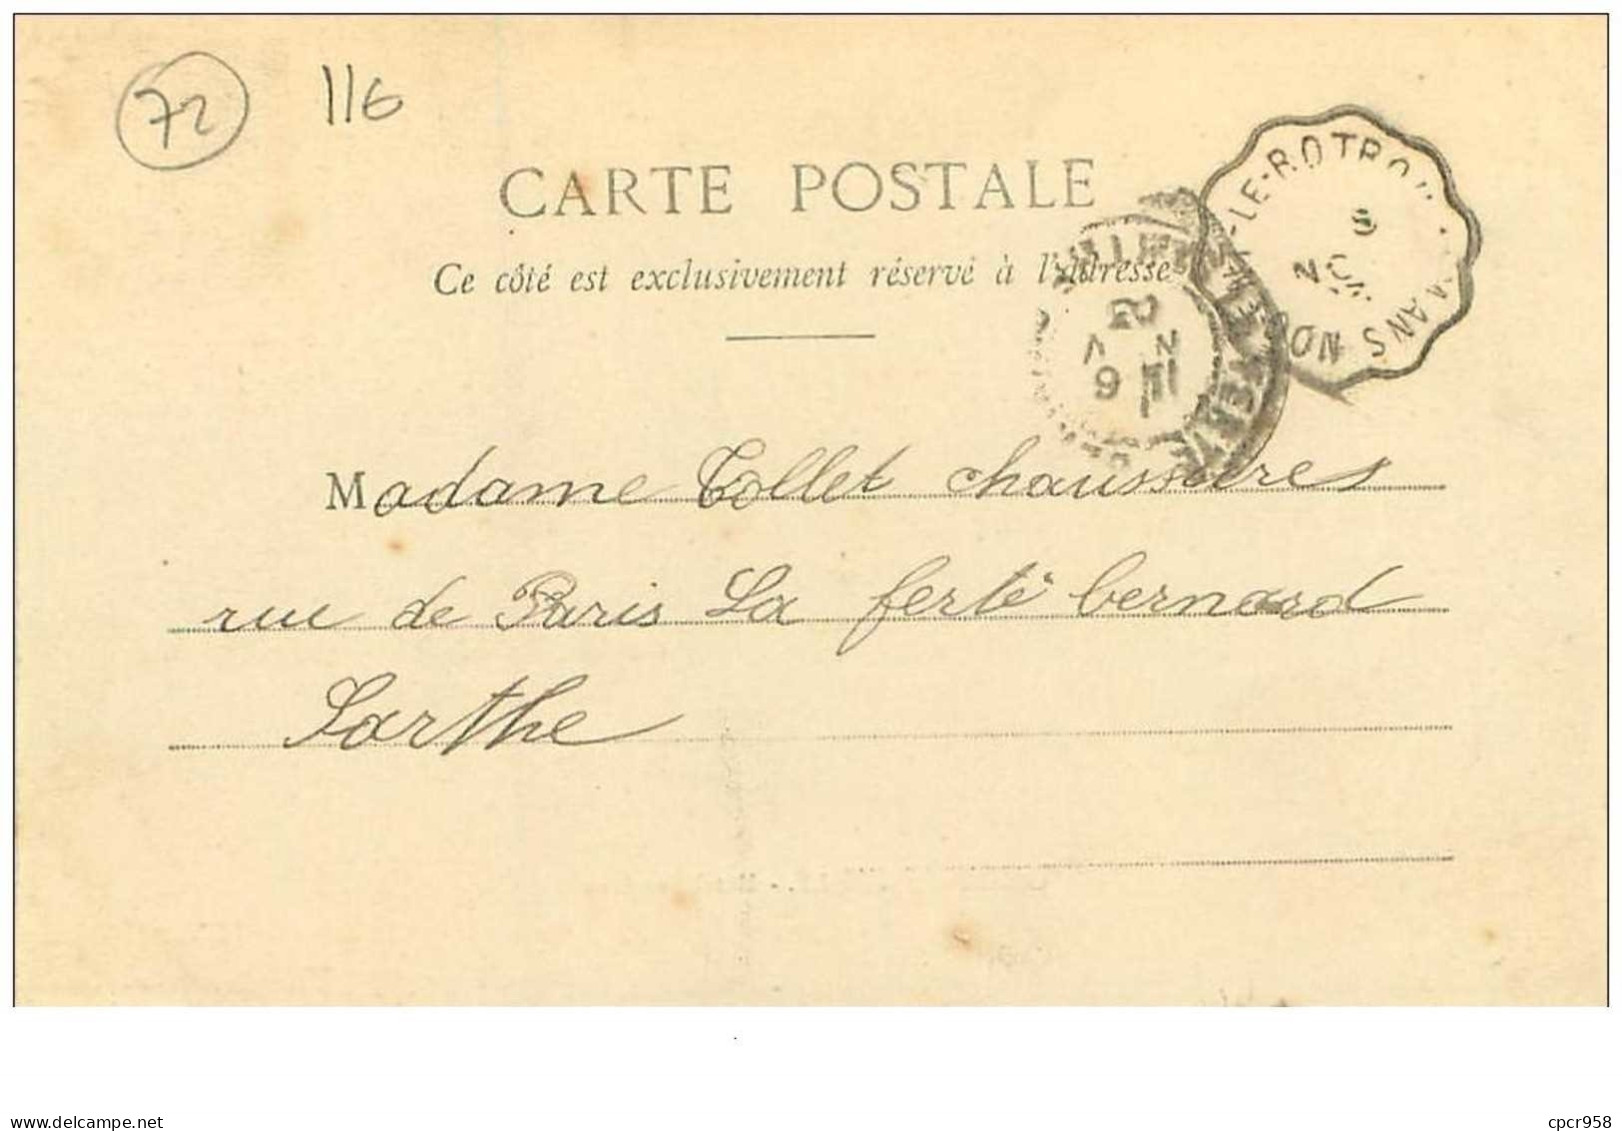 72 116
CARTE POSTALE
Ce côté est exclusivement réservé à l'adresse
LE-ROTROU MANS
9
NOV
Madame Tollet chaussures
rue de Paris La ferté bernard
Sarthe
www.delcampe.net
cpcr958